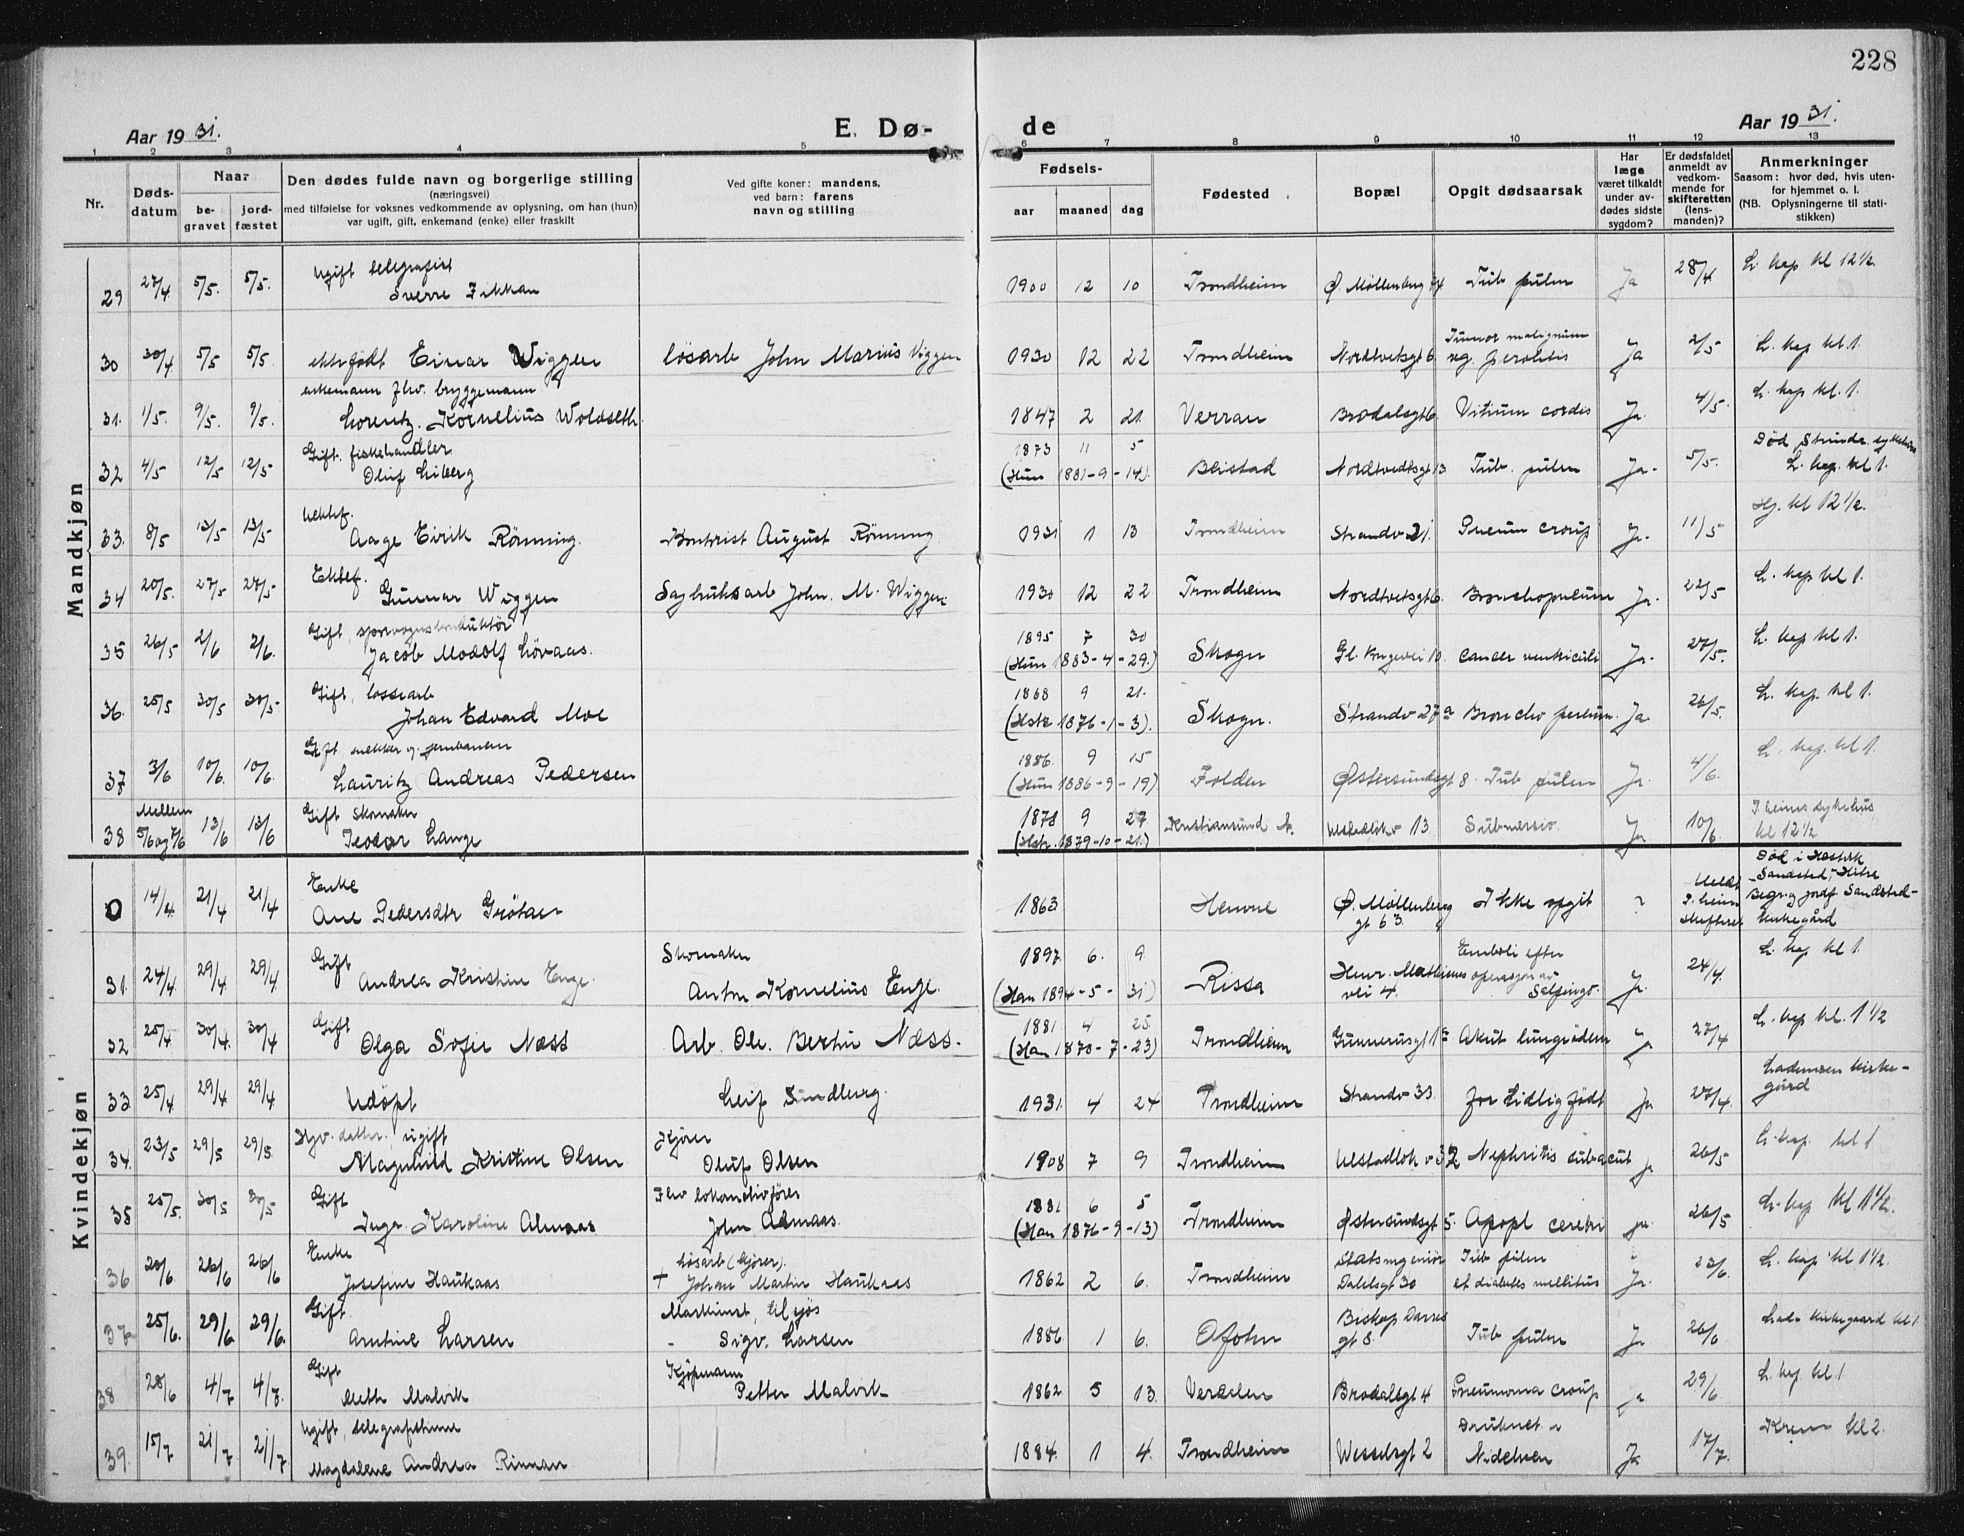 228
Aar 1931.
E. Dø-
de
Aar 1931.
1 2 3 4 5 6 7 8 9 10 11 12 13
Nr.
Døds-
datum
Naar
be-
gravet
jord-
fæstet
Den dødes fulde navn og borgerlige stilling
(næringsvei)
med tilføielse for voksnes vedkommende av oplysning, om han (hun)
var ugift, gift, enkemand (enke) eller fraskilt
Ved gifte koner: mandens,
ved barn: farens
navn og stilling
Fødsels-
aar
maaned
dag
Fødested
Bopæl
Opgit dødsaarsak
Har
læge
været tilkaldt
under av-
dødes sidste
sygdom?
Er dødsfaldet
anmeldt av
vedkom-
mende for
skifteretten
(lens-
manden)?
Anmerkninger
Saasom: hvor død, hvis uten-
for hjemmet o. l.
(NB. Oplysningerne til stati-
stikken)
Mandkjøn
Ugift telegrafist
29 27/4 5/5. 5/5. Sverre 1900 12 10 Trondheim Ø. Møllenberg Tub pulm Ja 28/4 L. kap kl 12 1/2.
Tumor malignum
30 30/4 5/5 5/5. ektefødt Einar Wiggen løsarb John Marius Viggen 1930 12 22 Trondheim Nordtvetsgt 6. Ja 2/5 L. kap kl 1.
enkemann fhv. bryggemann
31. 1/5 9/5. 9/5. Lorentz Kornelius Woldseth 1847 2 21. Verran Brodalsgt 6. Vitium cordis Ja. 4/5. L. kap kl. 1.
Gift. fiskehandler 1873 11 5 Død Strinda sykehus
32 4/5 12/5 12/5. Oluf Liberg (Hun 1881-9-14). Beistad Nordtvedtsgt 13 Tub. pulm Ja. 5/5. L. kap. kl 1.
Uektef.
33. 8/5 13/5 13/5. Aage Eirik Rönning. Kontorist August Rönning. 1931 1 13 Trondheim Strandv 21. Pneum croup Ja. 11/5 Hj. kl 12 1/2.
Ektef.
34 20/5. 27/5 27/5. Gunnar Wiggen Sagbruksarb John. M. Wiggen 1930 12 22 Trondheim Nordtvetsgt 6. Bronchopneum Ja. 22/5 L. kap kl 1.
Gift, sporvognskonduktör 1895 7 30
35 26/5 2/6 2/6. Jacob Modolf Lövaas. (Hun 1883-4-29.) Skogn Gl. Kongevei 10. cancer ventriculi Ja. 27/5. L. kap kl 1.
Gift, lossearb 1868 9 21.
36. 25/5 30/5 30/5. Johan Edvard Moe (Hstr 1876-1-3). Skogn. Strandv 27a Broncho pneum. Ja 26/5. L. kap. kl 1.
Gift snekker og 1886. 9 15
37 3/6 10/6. 10/6. Lauritz Andreas Pedersen (Hun 1886-9-19) Folden Østersundsgt 8. Tub pulm Ja. 4/6. L. kap. kl 1.
Mellem Gift Skomaker 1878 9 27 T.heims sykehus
38 5/6 og 7/6 13/6 13/6 Teodor Lange (Hstr. 1879-10-21.) Kristiansund N. 13 Submersio. Ja 10/6. kl 12 1/2
Kvindekjøn
Død i
Enke Meldt Sandstad, Hitra
0 14/4 21/4 21/4 Ane Pedersdtr Grötan 1863 Hemne Ø. Møllenberg gt 63. Ikke opgit ? T.heim skifteret Begr. og jordf. Sandstad- kirkegård
Gift Skomaker 1897. 6. 9. Emboli efter
31. 24/4. 29/4 29/4 Andrea Kristine Enge. Anton Kornelius Enge. (Han 1894-5-31) Rissa Henr. Mathisens vei 4. operasjon av Salpingt. Ja. 24/4. L. kap kl 1
Gift 1881. 4 25.
32 25/4 30/4. 30/4 Olga Sofie Næss Arb. Ole. Bertin Næss. (Han 1878-7-23) Trondheim Gunnerusgt 1a Akut lungeödem Ja 27/4 L. kap kl. 1 1/2
33 25/4 29/4 29/4 Udöpt Leif Sundberg. 1931. 4 24 Trondheim Strandv 33. for tidlig født Ja 27/4. Lademoen kirke- gård
Hjv. datter. ugift Kjörer
34. 23/5 29/5 29/5. Magnhild Kristine Olsen Oluf Olsen 1908 7 9 Trondheim 32 Nephritis subacut Ja 26/5 L. kap. kl 1
Gift Fhv lokomotivfører 1881 6 5
35 25/5. 30/5 30/5 Inga Karoline Almaas John Almaas. (Han 1876-9-13) Trondheim Østersundsgt 5. Apopl cerebri ja. 26/5 L. kap kl 1 1/2.
Enke Løsarb (Kjörer).
36 20/6 26/6 26/6 Josefine Haukaas + Johan Martin Haukaas 1862 2 6. Trondheim Statsingeniör Dahlsgt 30 Tub pulm et diabetes mellitus Ja. 23/6. L. kap kl 1 1/2
Gift Maskinist, til sjös
37 25/6. 29/6. 29/6. Amtine Larsen Sigv. Larsen 1886 1 6. Biskop gt 8. Tub pulm Ja 26/6 Lade kirkegaard kl 1
Gift Kjøpmann
38 28/6 4/7 4/7. Malvik Petter Malvik 1862 5 13. Verdalen Brodalsgt 4 Pneumonia croup ja 29/6 L. kap kl 1
Ugift, telegrafistinne Druknet
39. 15/7 21/7 21/7 Magdalene Andrea Rinnan 1884 1 4. Trondheim Wesselsgt 2 Nidelven Ja 17/7. Krem kl 2.